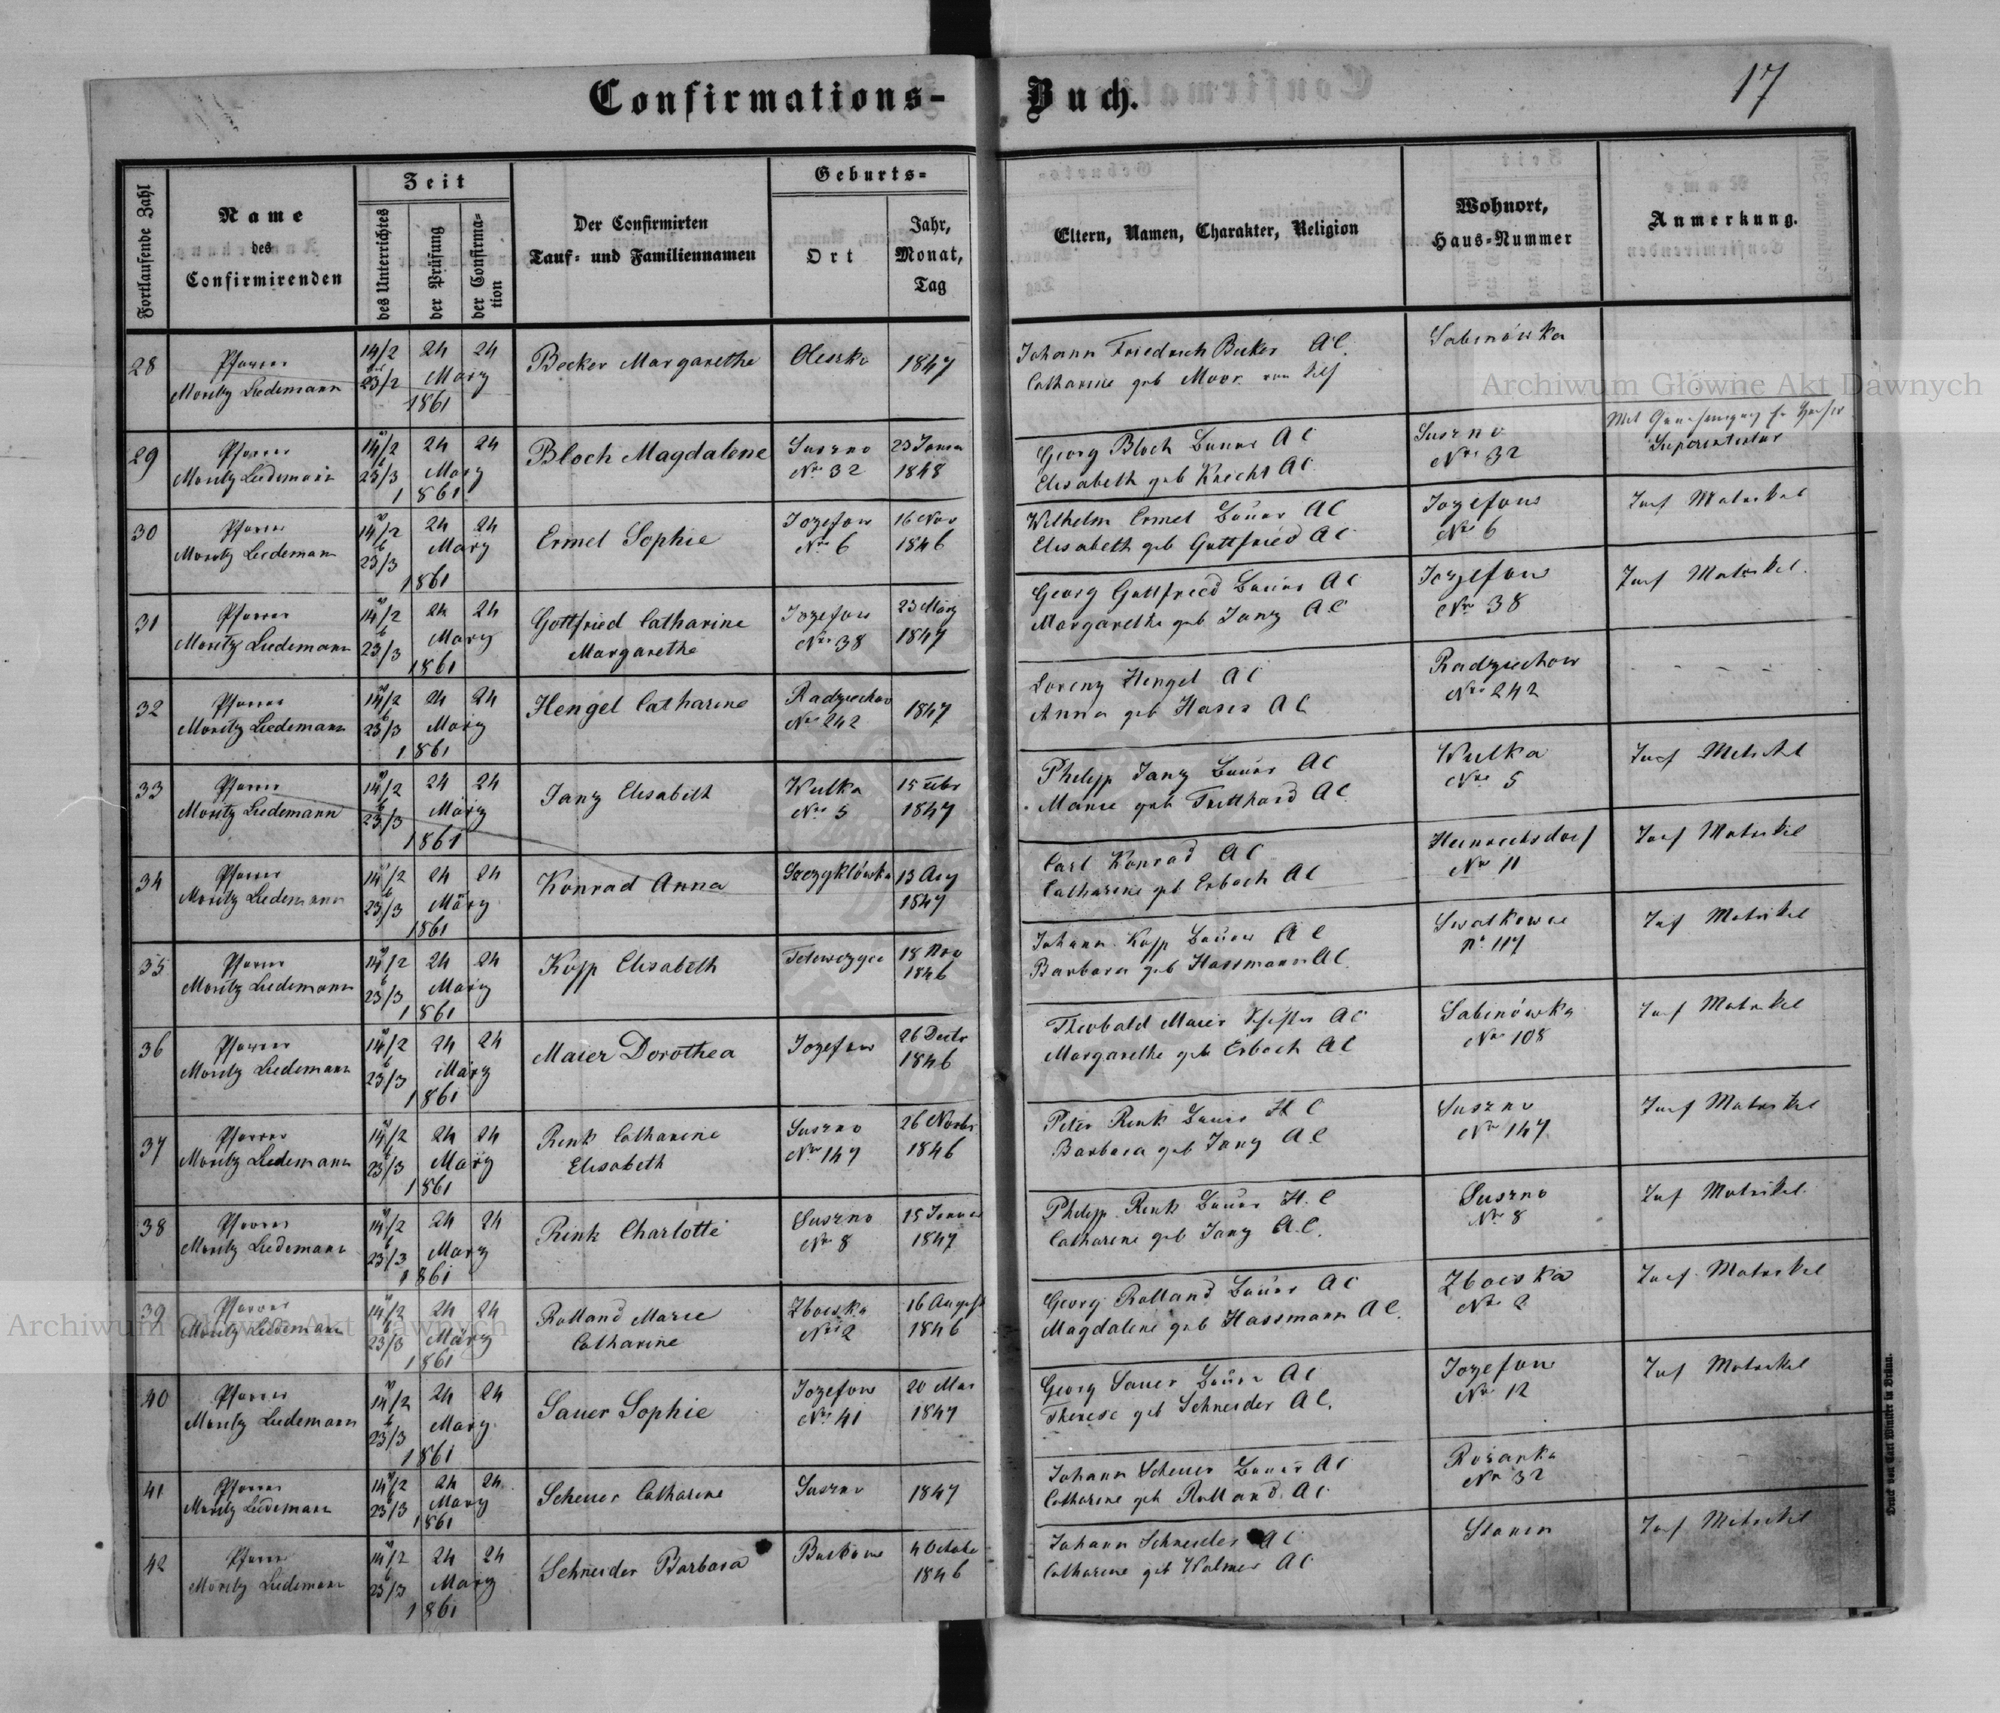 Confirmations-Buch.
17
Fortlaufende Zahl
Name des Confirmirenden
Zeit
des Unterrichtes
der Prüfung
der Confirmation
Der Confirmirten Tauf- und Familiennamen
Geburts-
Ort
Jahr, Monat, Tag
Eltern, Namen, Charakter, Religion
Wohnort, Haus-Nummer
Anmerkung.
28 Pfarrer Moritz Liedemann 14/2 23/2 24 24 März 1861 Becker Margarethe Olesko 1847
Johann Friedrich Becker AC. Sabinówka
Catharine geb Moor
29 Pfarrer Moritz Liedemann 14/2 23/3 24 24 März 1861 Bloch Magdalene Suszno No 32 23 Januar 1848
Georg Bloch Bauer AC Suszno No 32
Elisabeth geb Knecht AC
30 Pfarrer Moritz Liedemann 14/2 23/3 24 24 März 1861 Ermel Sophie Jozefow No 6 16 Nov 1846
Wilhelm Ermel Bauer AC Jozefow No 6 Matrikel
Elisabeth geb Gottfried AC
31 Pfarrer Moritz Liedemann 14/2 23/3 24 24 März 1861 Gottfried Catharine Margarethe Jozefow No 38 23 März 1847
Georg Gottfried Bauer AC Jozefow No 38 Matrikel.
Margarethe geb Janz AC
32 Pfarrer Moritz Liedemann 14/2 23/3 24 24 März 1861 Hengel Catharine Radziechow No 242 1847
Lorenz Hengel AC Radziechow No 242
Anna geb Haser AC
33 Pfarrer Moritz Liedemann 14/2 23/3 24 24 März 1861 Janz Elisabeth Wulka No 5 15 Febr 1847
Philipp Janz Bauer AC Wulka No 5 Matrikel
Marie geb AC
34 Pfarrer Moritz Liedemann 14/2 23/3 24 24 März 1861 Konrad Anna 13 Aug 1847
Carl Konrad AC Heinrichsdorf No 11 Matrikel
Catharine geb Erbach AC
35 Pfarrer Moritz Liedemann 14/2 23/3 24 24 März 1861 Kopp Elisabeth 18 Nov 1846
Johann Kopp Bauer AC No 117 Matrikel
Barbara geb Hassmann AC
36 Pfarrer Moritz Liedemann 14/2 23/3 24 24 März 1861 Maier Dorothea Jozefow 26 Decbr 1846
Theobald Maier AC Sabinówka No 108 Matrikel
Margarethe geb Erbach AC
37 Pfarrer Moritz Liedemann 14/2 23/3 24 24 März 1861 Rink Catharine Elisabeth Suszno No 147 26 Novbr 1846
Peter Rink Bauer H C Suszno No 147 Matrikel
Barbara geb Janz AC
38 Pfarrer Moritz Liedemann 14/2 23/3 24 24 März 1861 Rink Charlotte Suszno No 8 15 Januar 1847
Philipp Rink Bauer H. C Suszno No 8 Matrikel.
Catharine geb Janz A.C.
39 Pfarrer Moritz Liedemann 14/2 23/3 24 24 März 1861 Rolland Marie Catharine Zboiska No 2 16 August 1846
Georg Rolland Bauer AC Zboiska No 2 Matrikel
Magdalene geb Hassmann AC.
40 Pfarrer Moritz Liedemann 14/2 23/3 24 24 März 1861 Sauer Sophie Jozefow No 41 20 Mai 1847
Georg Sauer Bauer AC Jozefow No 12 Matrikel
Therese geb Schneider AC.
41 Pfarrer Moritz Liedemann 14/2 23/3 24 24. März 1861 Scheuer Catharine Suszno 1847
Johann Scheuer Bauer AC No 32
Catharine geb Rolland. AC
42 Pfarrer Moritz Liedemann 14/2 23/3 24 24 März 1861 Schneider Barbara 4 October 1846
Johann Schneider AC Stanin Matrikel
Catharine geb Walmer AC
Druck von Carl Winiker in Brünn.
Archiwum Główne Akt Dawnych
Archiwum Główne Akt Dawnych